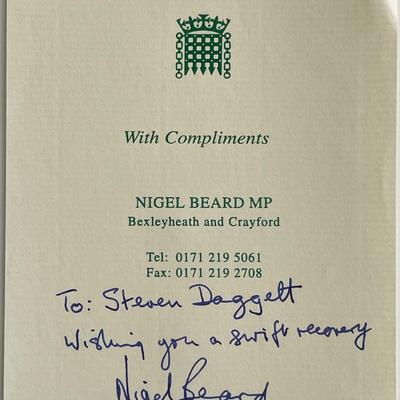 With Compliments
NIGEL BEARD MP
Bexleyheath and Crayford
Tel: 0171 219 5061
Fax: 0171 219 2708
To: Steven Daggett
Wishing you a swift recovery
Nigel Beard